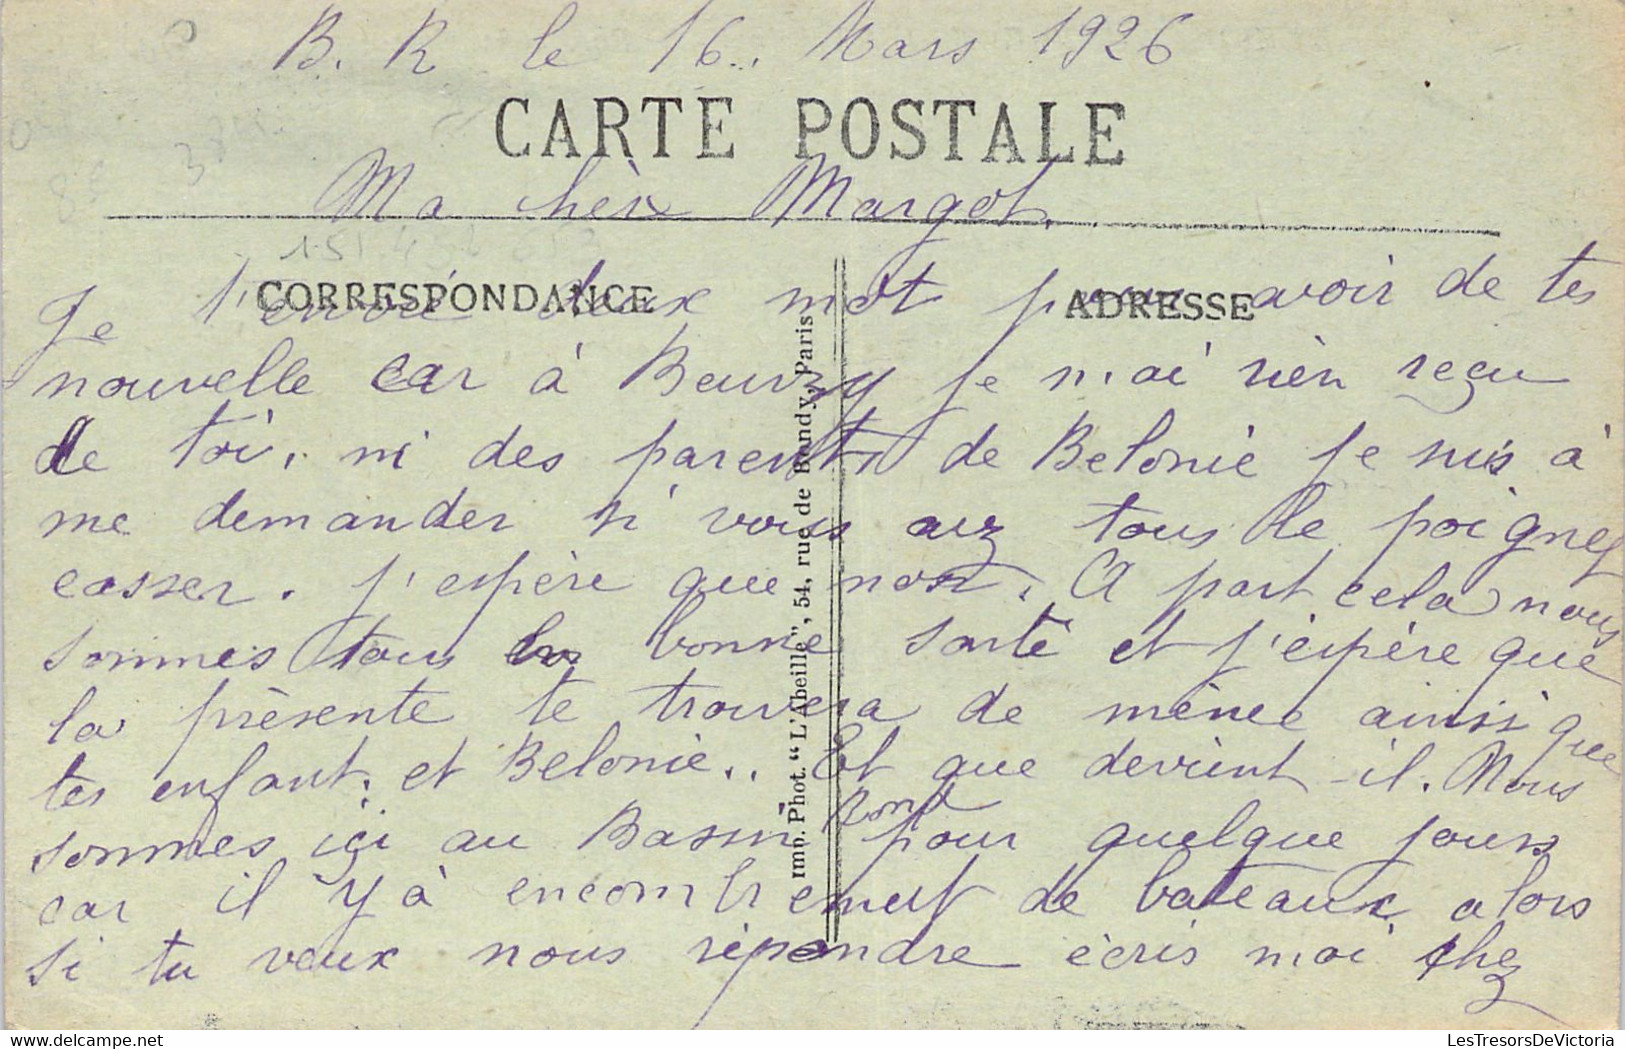 B. R le 16.. Mars 1926
CARTE POSTALE
Ma chère Margot.
CORRESPONDANCE
ADRESSE
Je t'envoie deux mot pour avoir de tes
nouvelle car à Beuvry je n'ai rien reçu
de toi, ni des parents de Belonie je suis à
me demander si vous avez tous le poignet
casser. J'espère que non. A part cela nous
sommes tous en bonne santé et j'espère que
la présente te trouvera de même ainsi que
tes enfant. et Belonie.. Et que devient-il. Nous
sommes içi au Bassin Rond pour quelque jours
car il y à encombrement de bateaux alors
si tu veux nous répondre écris moi chez
Imp. Phot. "L'Abeille", 54, rue de Bondy, Paris
LesTresorsDeVictoria